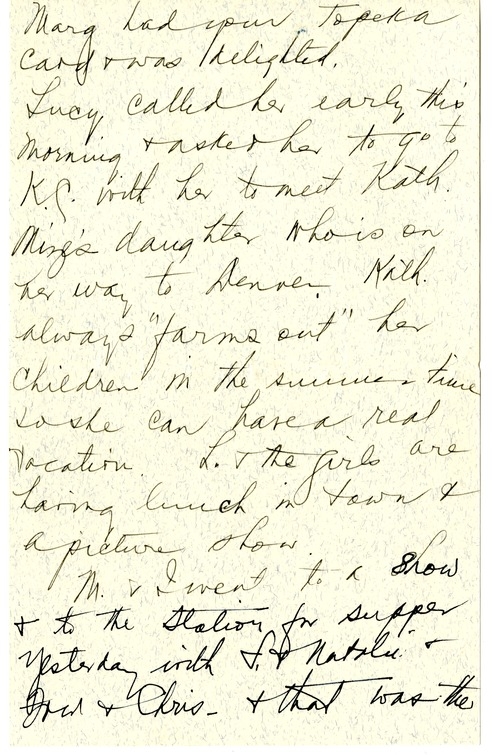 Marg had your Topeka
Card & was delighted.
Lucy called her early this
morning & asked her to go to
K.C. with her to meet Kath.
Ming's daughter who is on
her way to Denver. Kath.
always "farms out" her
children in the summer time
so she can have a real
vacation. L. & the girls are
having lunch in town &
a picture show.
M. & I went to a show
& to the Station for supper
yesterday with & Natalie &
& Chris - & that was the